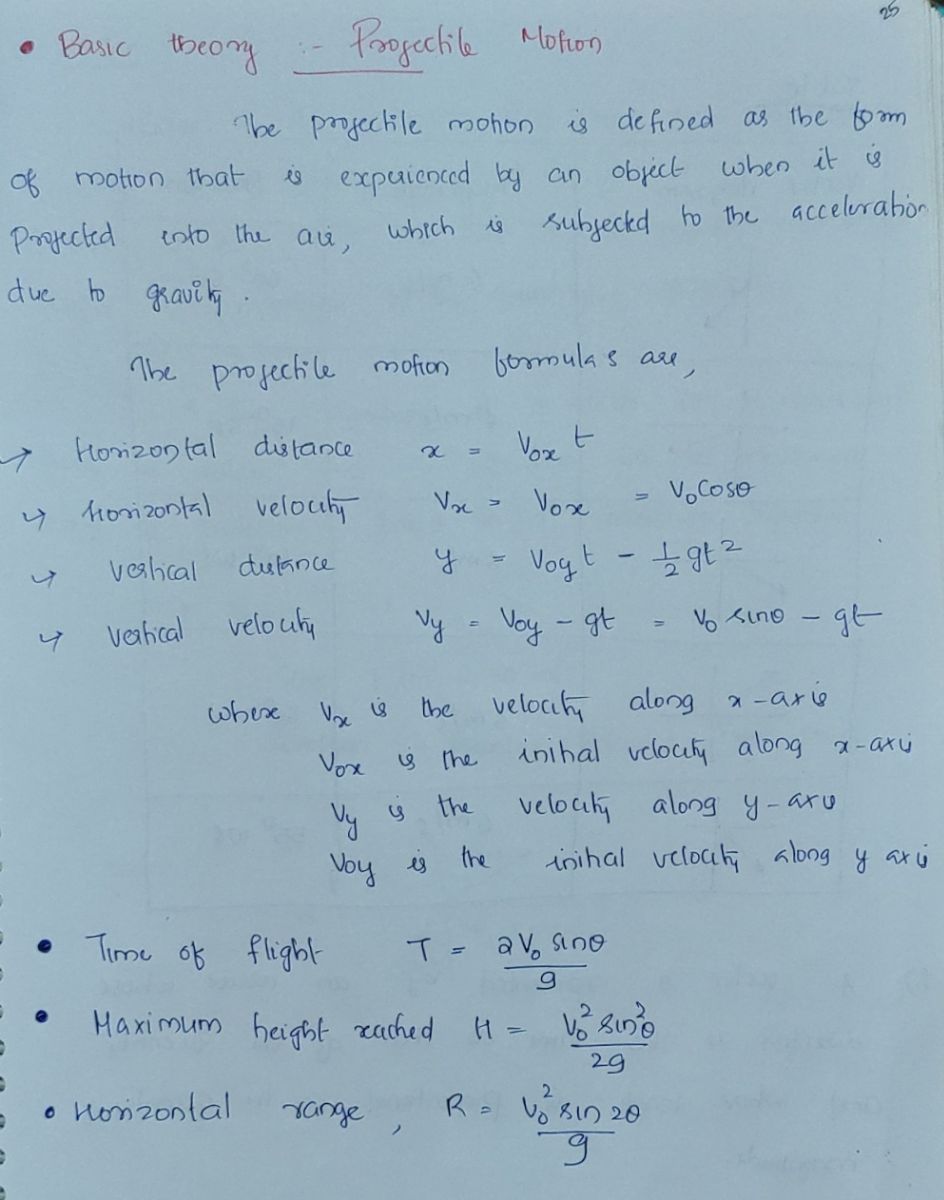 25
• Basic theory :- Projectile Motion
The projectile motion is defined as the form
of motion that is experienced by an object when it is
Projected into the air, which is subjected to the acceleration
due to gravity.
The projectile motion formulas are,
→ Horizontal distance x = V₀ₓ t
→ horizontal velocity Vₓ = V₀ₓ = V₀ cosθ
→ vertical distance y = V₀y t - 1/2 gt²
→ vertical velocity Vy = V₀y - gt = V₀ sinθ - gt
where Vₓ is the velocity along x-axis
V₀ₓ is the initial velocity along x-axis
Vy is the velocity along y-axis
V₀y is the initial velocity along y axis
• Time of flight T = 2V₀ sinθ / g
• Maximum height reached H = V₀² sin²θ / 2g
• Horizontal range, R = V₀² sin 2θ / g